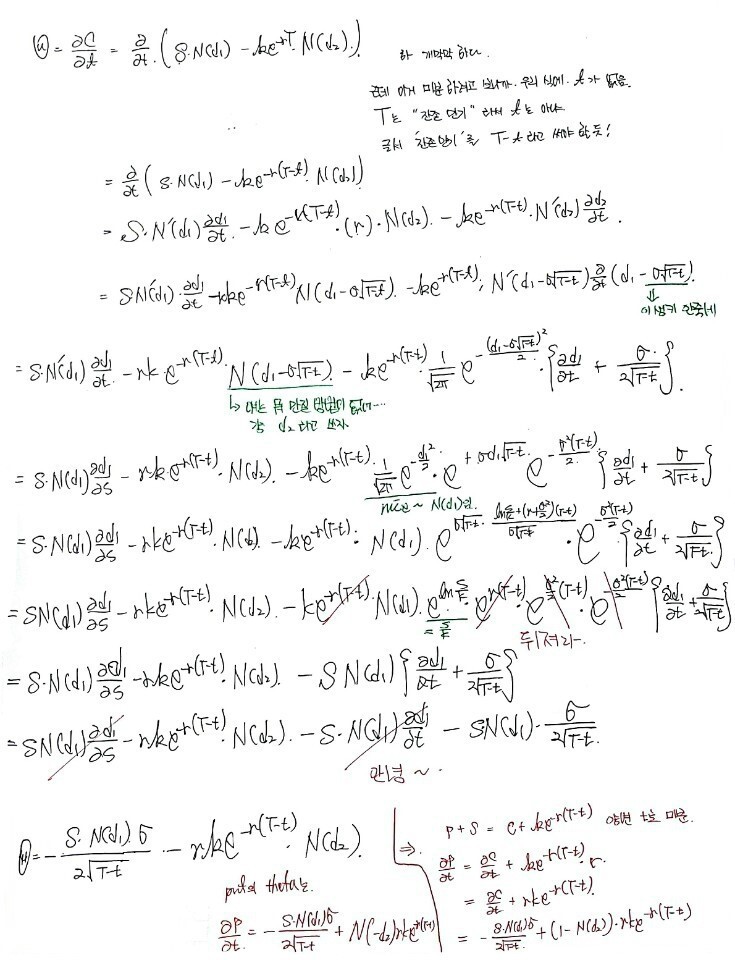 Θ = ∂C/∂t = ∂/∂t (S·N(d₁) − ke^{-rT}·N(d₂))
하 개막막 하다.
근데 이거 미분 하려고 보니까. 우리 식에. t가 없음.
T는 "잔존 만기" 라서 t는 아냐
글서 '잔존만기'를 T−t 라고 써야 할 듯!
= ∂/∂t (S·N(d₁) − ke^{-r(T-t)}·N(d₂))
= S·N'(d₁) ∂d₁/∂t − ke^{-r(T-t)}·(r)·N(d₂) − ke^{-r(T-t)}·N'(d₂) ∂d₂/∂t.
= S·N'(d₁)·∂d₁/∂t − rke^{-r(T-t)} N(d₁−σ√(T-t)) − ke^{-r(T-t)}· N'(d₁−σ√(T-t)) ∂/∂t (d₁−σ√(T-t))
= S·N'(d₁) ∂d₁/∂t − rk·e^{-r(T-t)}·N(d₁−σ√(T-t)) − ke^{-r(T-t)}·1/√2π e^{-(d₁−σ√(T-t))²/2}·{∂d₁/∂t + σ/2√(T-t)}.
↳ 얘는 뭐 만질 방법이 없네....
걍 d₂ 라고 쓰자.
= S·N(d₁) ∂d₁/∂s − rke^{-r(T-t)}·N(d₂) − ke^{-r(T-t)}·1/√2π e^{-d₁²/2}·e^{+σd₁√(T-t)} e^{-σ²(T-t)/2} {∂d₁/∂t + σ/2√(T-t)}
N(d₁)임.
= S·N(d₁) ∂d₁/∂s − rke^{-r(T-t)}·N(d₂) − ke^{-r(T-t)}·N(d₁)·e^{σ√(T-t)·(ln S/E+(r+σ²/2)(T-t))/σ√(T-t)}·e^{-σ²(T-t)/2} {∂d₁/∂t + σ/2√(T-t)}
= SN(d₁) ∂d₁/∂s − rke^{-r(T-t)}·N(d₂) − ke^{-r(T-t)}·N(d₁)·e^{ln S/E}·e^{r(T-t)}·e^{σ²/2(T-t)}·e^{-σ²(T-t)/2} {∂d₁/∂t + σ/2√(T-t)}
= S/E
뒤져라~.
= S·N(d₁) ∂d₁/∂s − rke^{-r(T-t)}·N(d₂) − SN(d₁) {∂d₁/∂t + σ/2√(T-t)}
= SN(d₁) ∂d₁/∂s − rke^{-r(T-t)}·N(d₂) − S·N(d₁) ∂d₁/∂t − SN(d₁)·σ/2√(T-t).
안녕 ~.
Θ = − S·N(d₁)·σ/2√(T-t) − rke^{-r(T-t)}·N(d₂).
put의 theta는
∂P/∂t = − S·N(d₁)σ/2√(T-t) + N(−d₂)rke^{-r(T-t)}
⇒ P + S = C + ke^{-r(T-t)} 양변 t로 미분.
∂P/∂t = ∂C/∂t + ke^{-r(T-t)}·r.
= ∂C/∂t + rke^{-r(T-t)}.
= − S·N(d₁)σ/2√(T-t) + (1−N(d₂))·rke^{-r(T-t)}